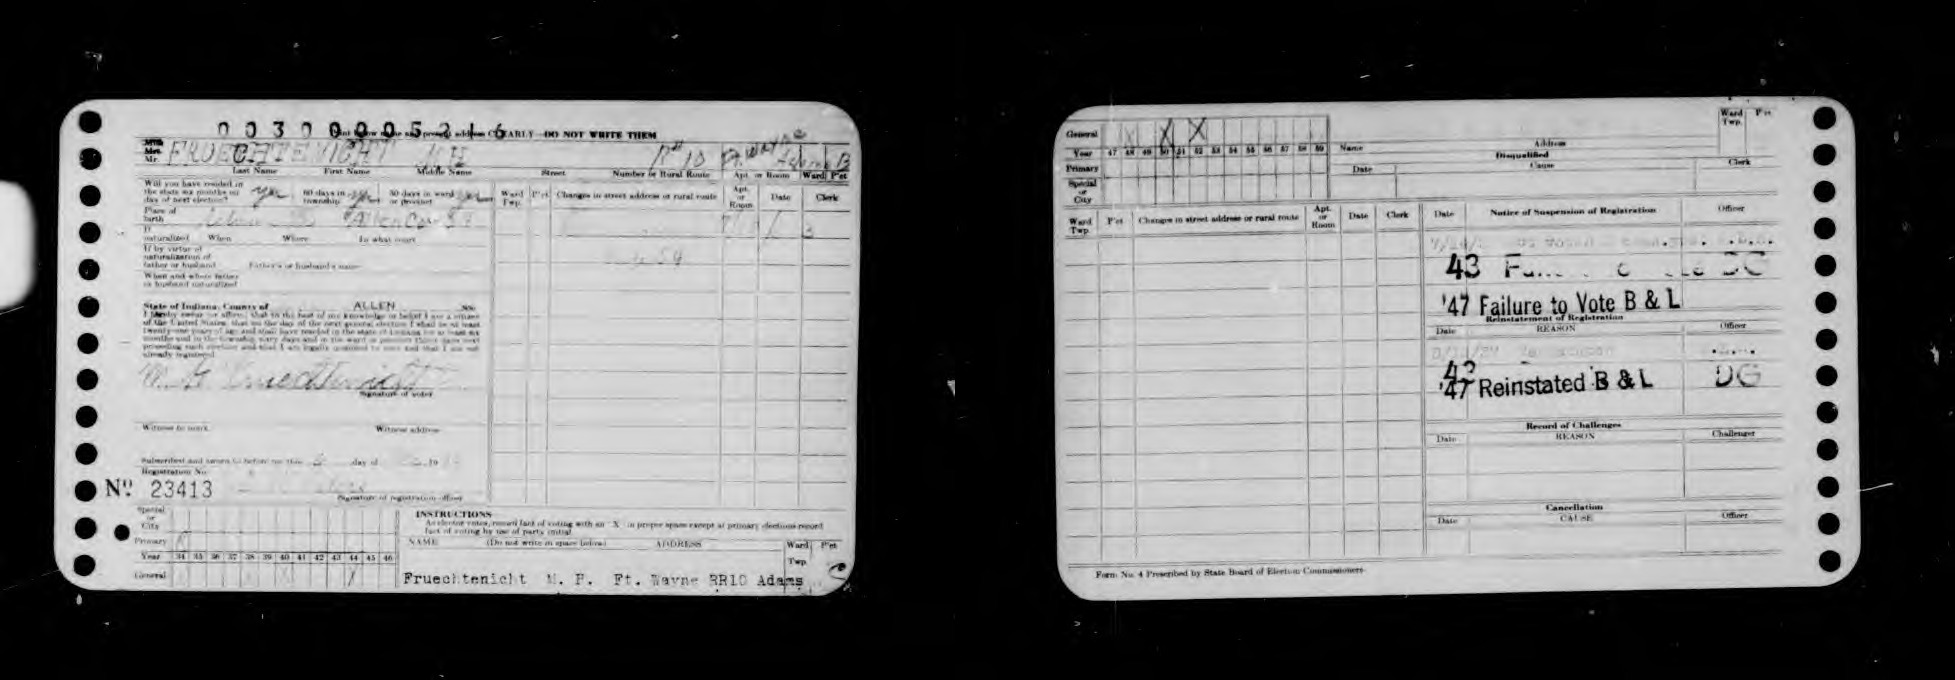 00300005216
CLEARLY—DO NOT WRITE THEM
Miss
Mrs.
Mr. FRUECHTENICHT
RR 10 Ft. Wayne Adams B
Last Name First Name Middle Name Street Number or Rural Route Apt. or Room Ward P'ct
Will you have resided in
the state six months on
day of next election? Yes 60 days in township yes 30 days in ward or precinct
Ward Twp. P'ct Changes in street address or rural route Apt. or Room Date Clerk
Place of
birth Allen Co.
If
naturalized When Where In what court
If by virtue of
naturalization of
father or husband Father's or husband's name
When and where father
or husband naturalized
State of Indiana, County of ALLEN SS:
I hereby swear (or affirm) that to the best of my knowledge or belief I am a citizen
of the United States, that on the day of the next general election I shall be at least
twenty-one years of age and shall have resided in the state of Indiana for at least six
months and in the township sixty days and in the ward or precinct thirty days next
preceding such election and that I am legally qualified to vote and that I am not
already registered.
Fruechtenicht
Signature of voter
Witness to mark Witness address
Subscribed and sworn to before me this day of 19
Registration No.
No. 23413
Signature of registration officer
Special
or
City
Primary
Year 34 35 36 37 38 39 40 41 42 43 44 45 46
General
INSTRUCTIONS
As elector votes, record fact of voting with an "X" in proper space except at primary elections record
fact of voting by use of party initial.
NAME (Do not write in space below) ADDRESS Ward Twp. P'ct
Fruechtenicht M. F. Ft. Wayne RR10 Adams
General X X
Year 47 48 49 50 51 52 53 54 55 56 57 58 59
Primary
Special
or
City
Ward Twp. P'ct
Name Address
Disqualified
Date Cause Clerk
Ward Twp. P'ct Changes in street address or rural route Apt. or Room Date Clerk
Date Notice of Suspension of Registration Officer
43 DG
'47 Failure to Vote B & L
Reinstatement of Registration
Date REASON Officer
43
'47 Reinstated B & L DG
Record of Challenges
Date REASON Challenger
Cancellation
Date CAUSE Officer
Form No. 4 Prescribed by State Board of Election Commissioners